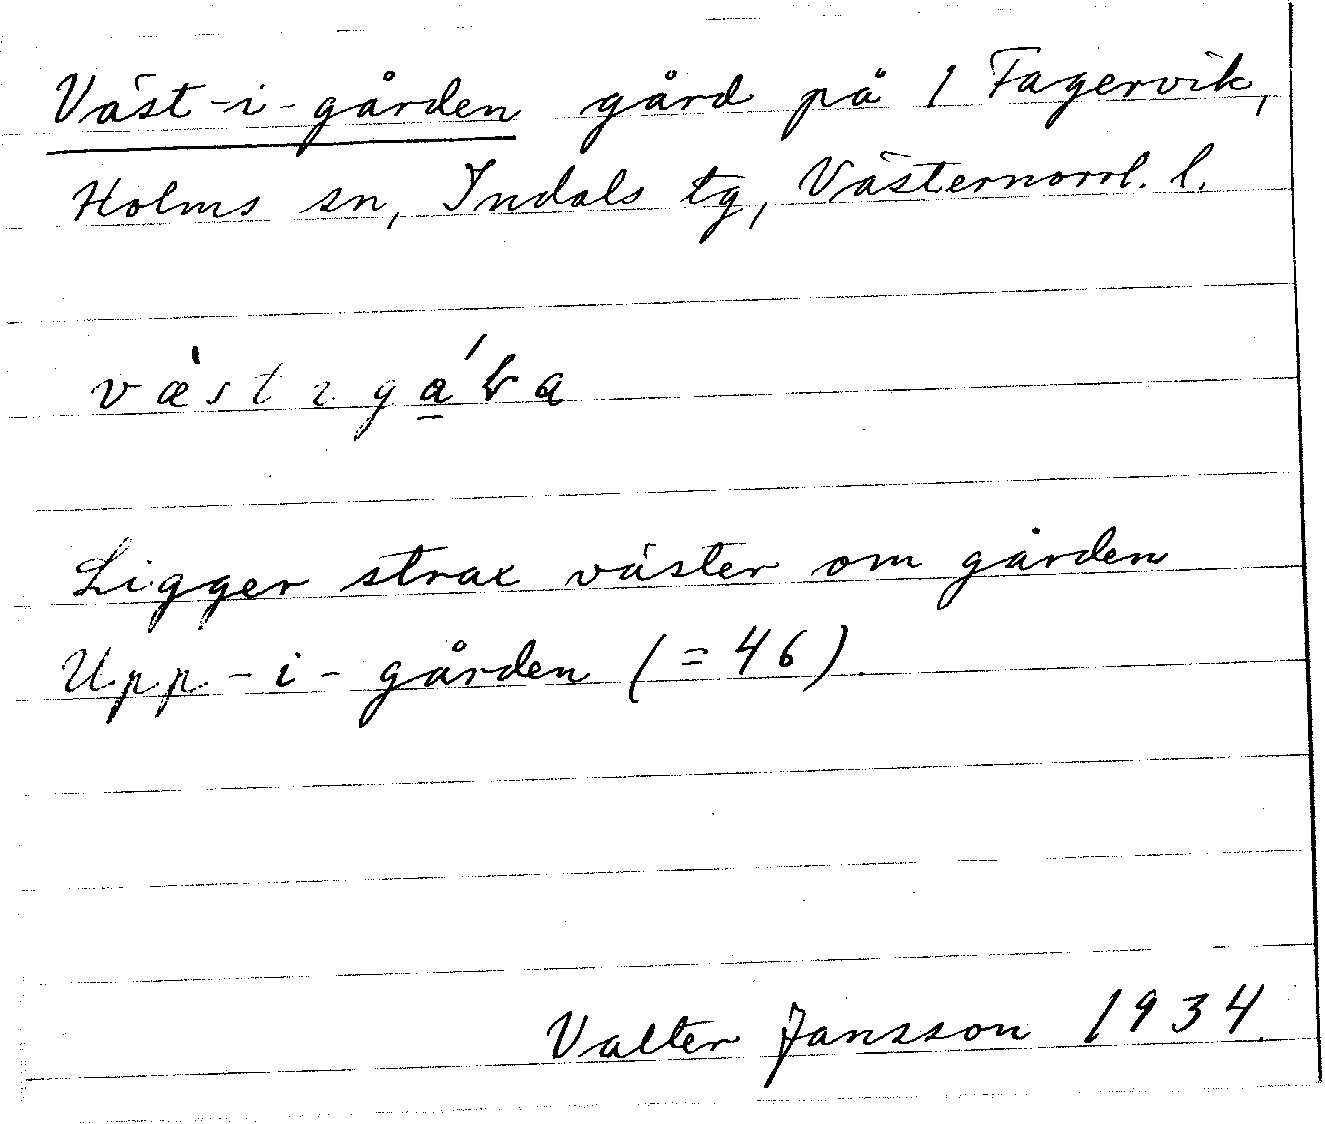 Väst-i-gården gård på 1 Fagervik,
Holms sn, Indals tg, Västernorrl. l.
Ligger strax väster om gården
Upp-i-gården (=46).
Valter Jansson 1934.